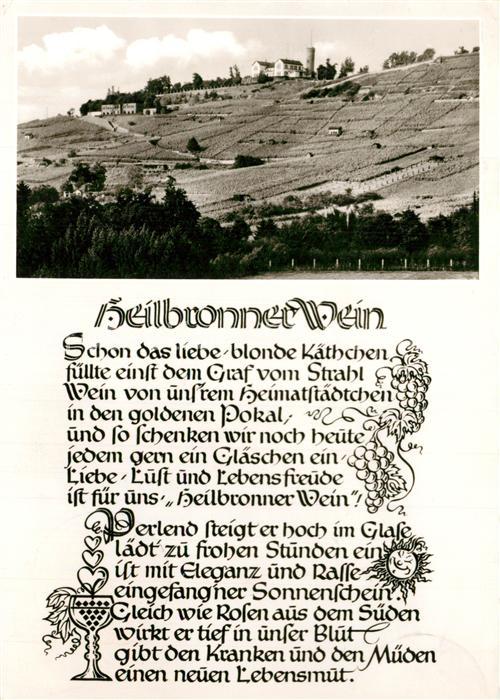 Heilbronner Wein
Schon das liebe, blonde Käthchen
füllte einst dem Graf vom Strahl
Wein von uns'rem Heimatstädtchen
in den goldenen Pokal,
und so schenken wir noch heute
jedem gern ein Gläschen ein,
Liebe, Lust und Lebensfreude
ist für uns, „Heilbronner Wein"!
Perlend steigt er hoch im Glase
lädt zu frohen Stunden ein
ist mit Eleganz und Rasse
eingefang'ner Sonnenschein
Gleich wie Rosen aus dem Süden
wirkt er tief in unser Blut
gibt den Kranken und den Müden
einen neuen Lebensmut.